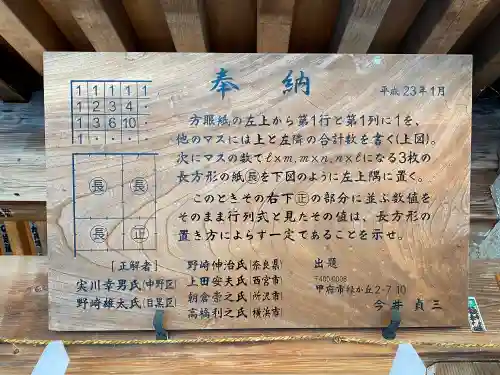 奉納
平成23年1月
1 1 1 1 ・
1 2 3 4 ・
1 3 6 10 ・
1 ・ ・ ・
方眼紙の左上から第1行と第1列に1を、
他のマスには上と左隣の合計数を書く(上図)。
次にマスの数でℓ×m,m×n,n×ℓになる3枚の
長方形の紙㊐を下図のように左上隅に置く。
このときその右下㊣の部分に並ぶ数値を
そのまま行列式と見たその値は、長方形の
置き方によらず一定であることを示せ。
長 長
長 正
[正解者]
実川幸男氏(中野区)
野崎雄太氏(目黒区)
野崎伸治氏(奈良県)
上田安夫氏(西宮市)
朝倉崇之氏(所沢市)
高橋利之氏(横浜市)
出題
〒400-0008
甲府市緑が丘2-7-10
今井貞三